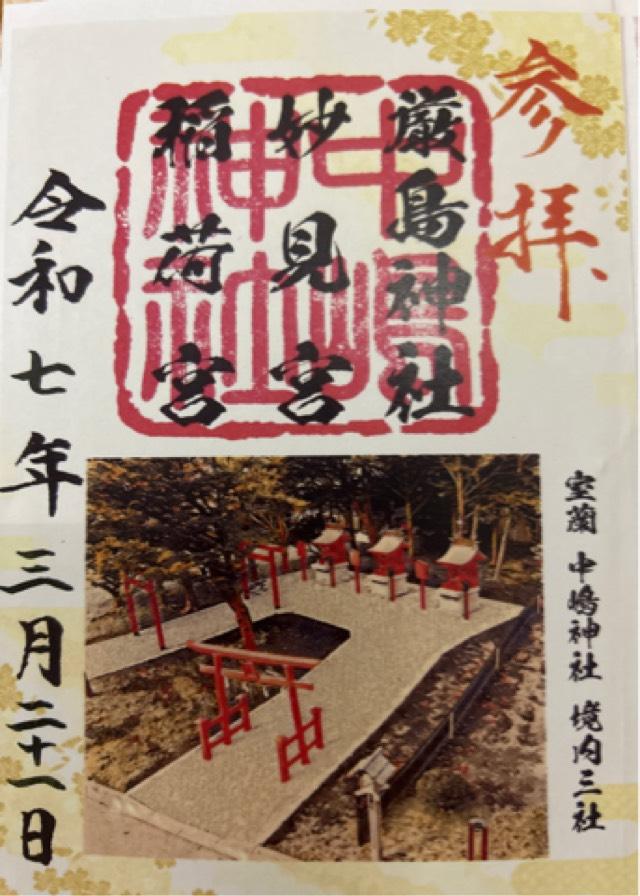 参拝
厳島神社
妙見宮
稲荷宮
中嶋神社
令和七年三月二十一日
室蘭 中嶋神社 境内三社